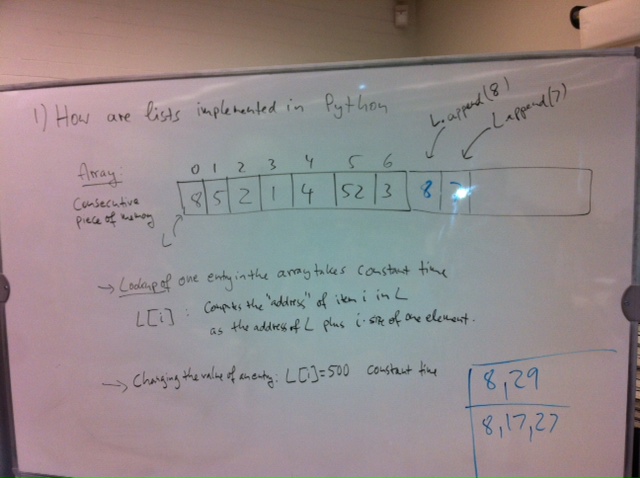 1) How are lists implemented in Python
L.append(8)
L.append(7)
Array:
0 1 2 3 4 5 6
Consecutive
piece of memory
8 5 2 1 4 52 3 8 7
L
→ Lookup of one entry in the array takes constant time
L[i] : Computes the "address" of item i in L
as the address of L plus i·size of one element.
→ Changing the value of an entry: L[i]=500 constant time
8,29
8,17,27